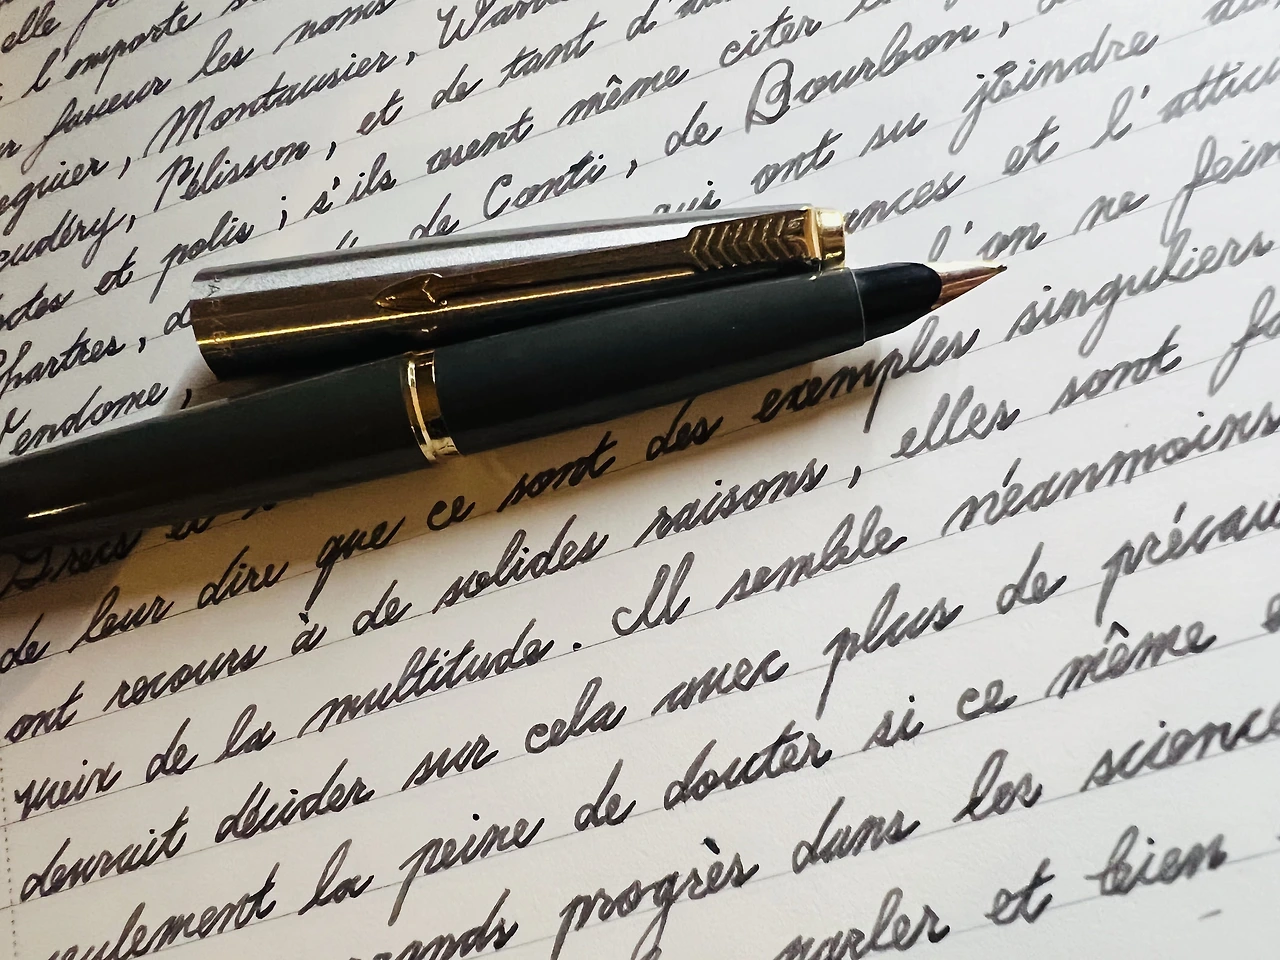 elle
l'importe
faveur les noms
eguier, Montausier, Ward
eudéry, Pélisson, et de tant d'au
et polis ; s'ils osent même citer
Chartres, d de Conti, de Bourbon,
Vendome, qui ont su joindre
ances et l'attici
l'on ne fein
Grecs et
de leur dire que ce sont des exemples singuliers
ont recours à de solides raisons, elles sont fo
voix de la multitude. Il semble néanmoins
devrait décider sur cela avec plus de précau
eulement la peine de douter si ce même e
rands progrès dans les science
parler et bien
PARKER